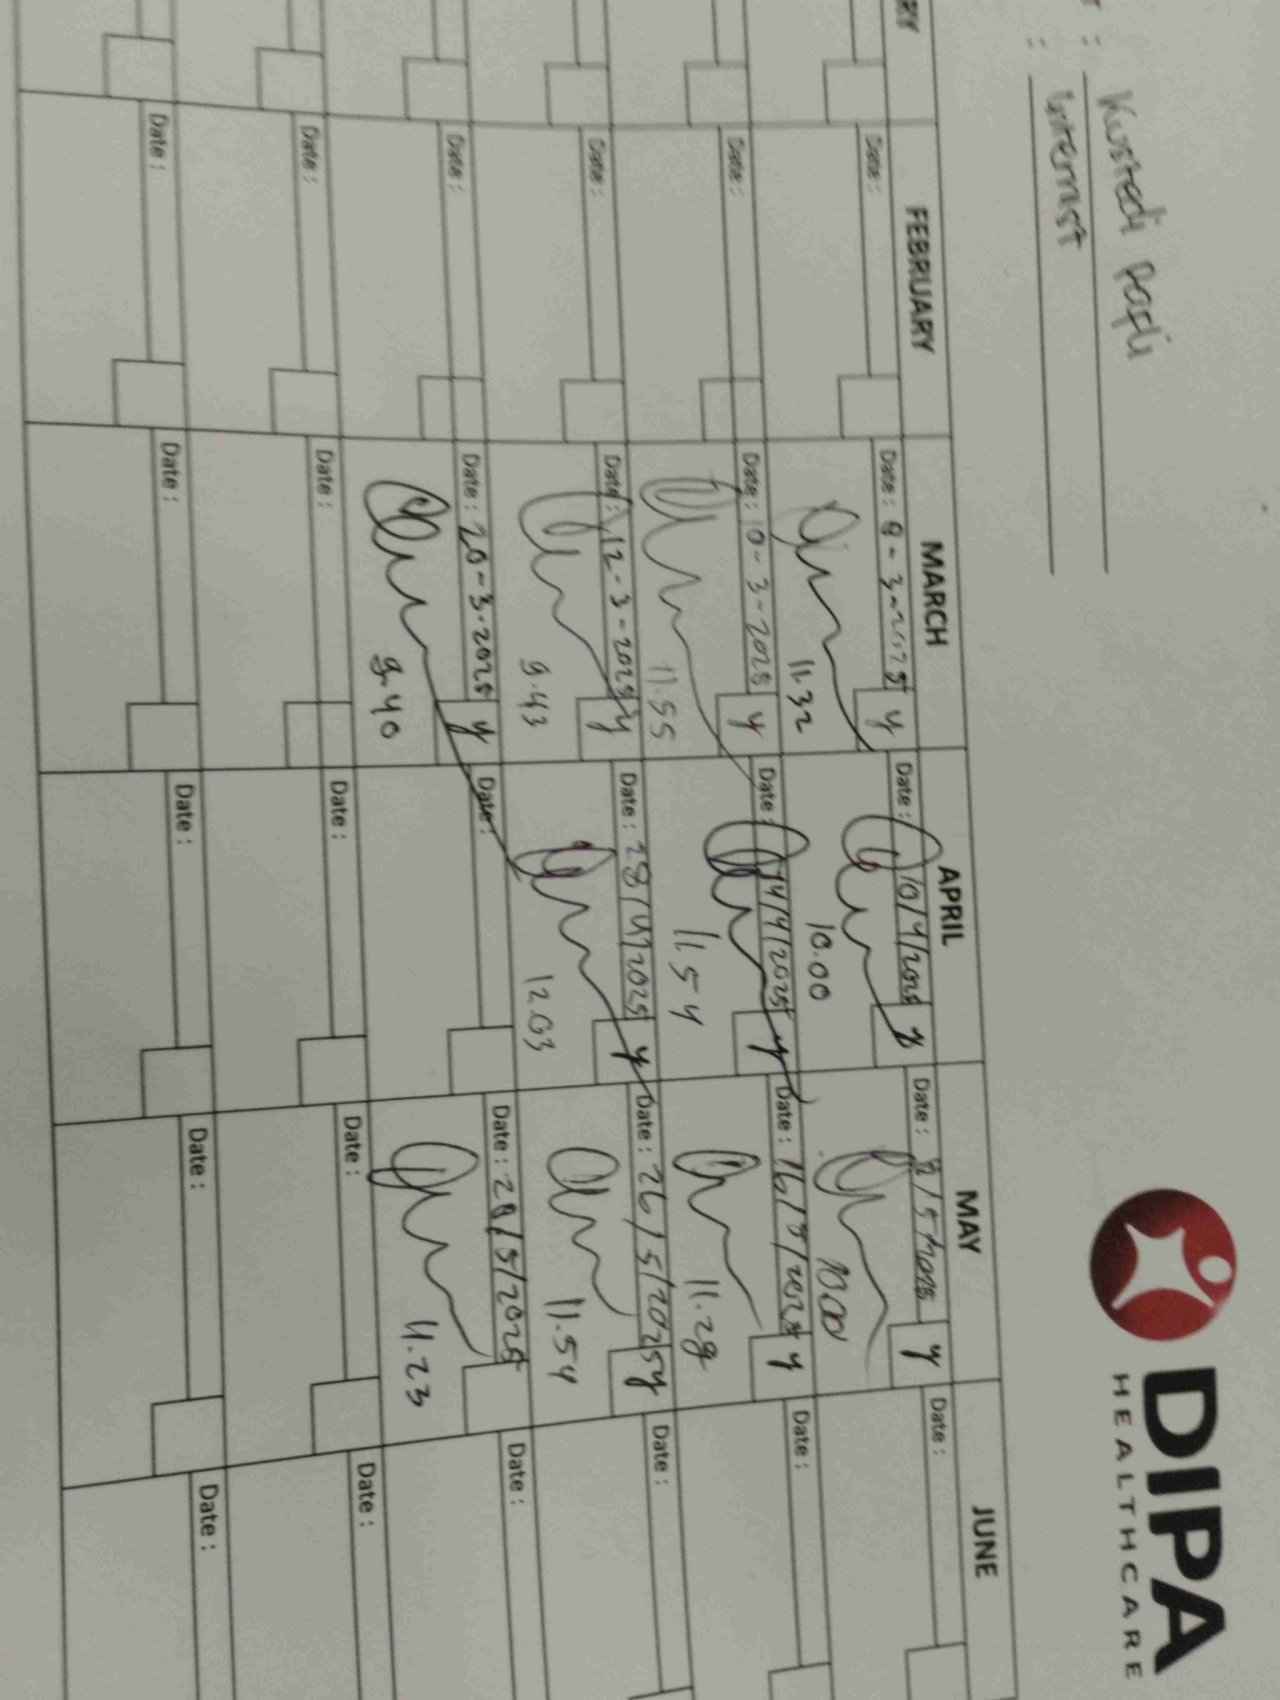 DIPA
HEALTHCARE
: Kusredi
: Internist
FEBRUARY MARCH APRIL MAY JUNE
Date : Date : 8-3-2025 y Date : 10/4/2025 y Date : 8/5/2025 y Date :
11.32 10.00 10.00
Date : Date : 10-3-2025 y Date : 14/4/2025 y Date : 16/5/2025 y Date :
11.55 11.54 11.29
Date : Date : 12-3-2025 y Date : 28/4/2025 y Date : 26/5/2025 y Date :
9.43 12.03 11.54
Date : Date : 20-3-2025 y Date : Date : 28/5/2025 Date :
9.40 11.23
Date : Date : Date : Date : Date :
Date : Date : Date : Date : Date :